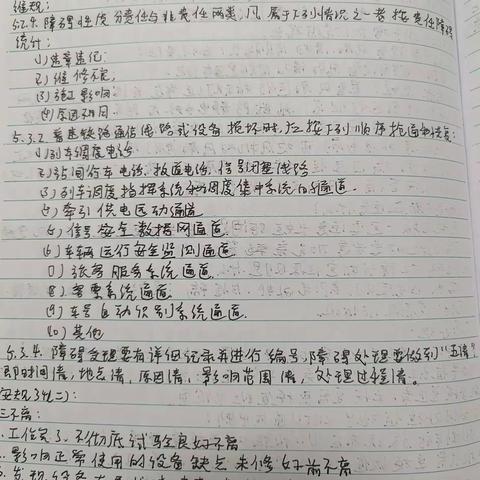 维规:
5.2.9. 障碍性质分责任与非责任两类, 凡属于下列情况之一者按责任障碍
统计:
(1) 违章违纪
(2) 维修不良
(3) 施工影响
(4) 原因不明.
5.3.2 着急铁路通信线路或设备损坏时, 应按下列顺序抢通和恢复:
(1) 列车调度电话
(2) 站间行车电话、扳道电话、信号闭塞线路
(3) 列车调度指挥系统和调度集中系统的通道
(4) 牵引供电远动通道
(5) 信号安全数据网通道
(6) 车辆运行安全监测通道
(7) 旅客服务系统通道
(8) 客票系统通道
(9) 车号自动识别系统通道
(10) 其他
5.3.4. 障碍受理要有详细记录并进行编号, 障碍处理要做到"五清"
即时间清, 地点清, 原因清, 影响范围清, 处理过程清。
安规34(二):
三不离:
1. 工作完了, 不彻底试验良好不离
2. 影响正常使用的设备缺点未修好前不离
发现设备